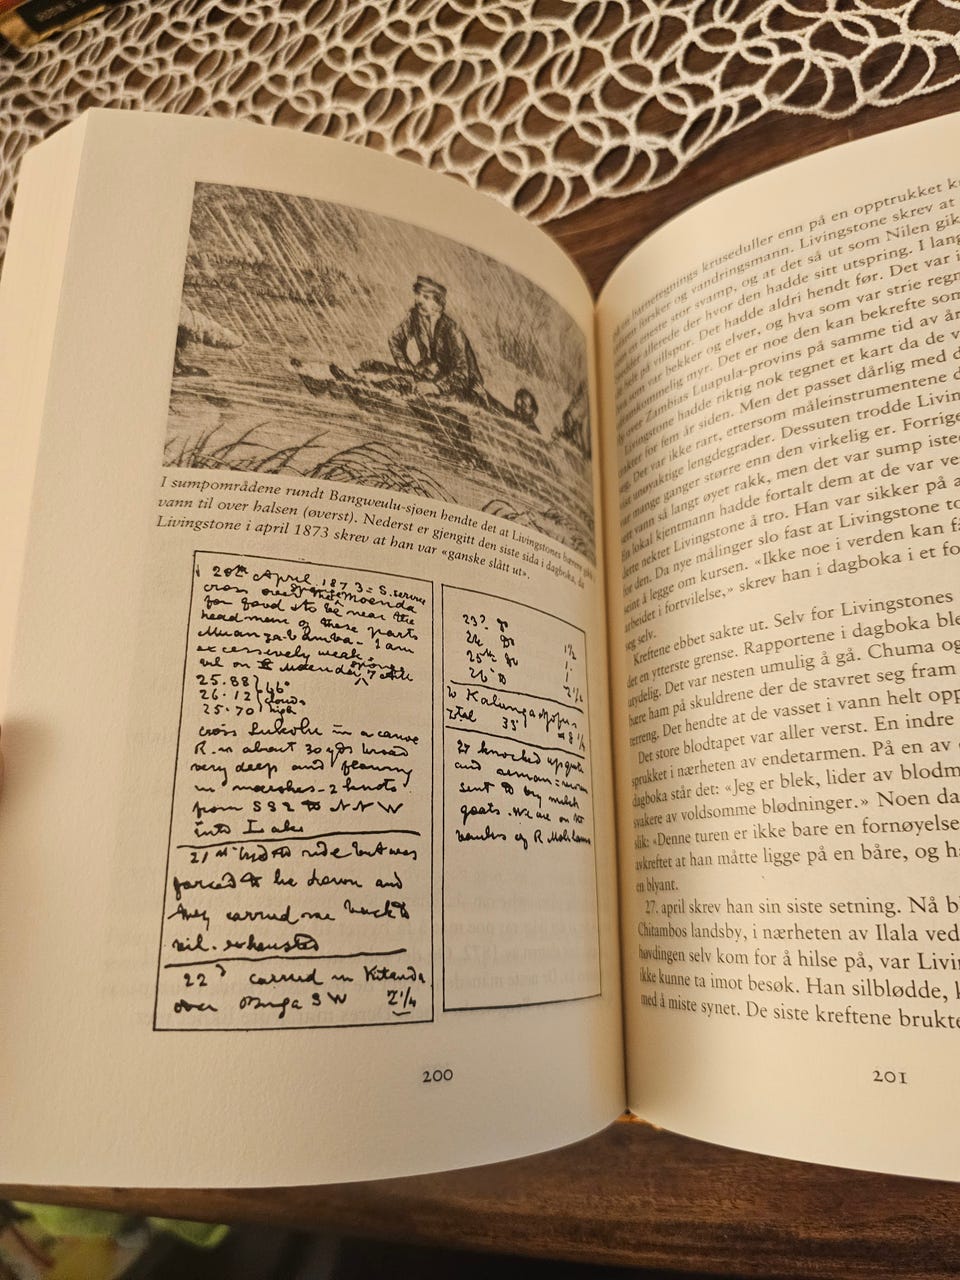 I sumpområdene rundt Bangweulu-sjøen hendte det at Livingstones bærere gikk i
vann til over halsen (øverst). Nederst er gjengitt den siste sida i dagboka, da
Livingstone i april 1873 skrev at han var «ganske slått ut».
20th April 1873 = S. service
cross over the Moenda
for food & to be near the
headman of these parts
Muanzabamba - I am
excessively weak
vil on Moenda
25.88
26.12 clouds
25.70 high
cross Lukolu in a canoe
R. is about 30 yds broad
very deep and flowing
in marshes - 2 knots
from SSE to NNW
into Lake
21st tried to ride but was
forced to lie down and
they carried me back to
vil. exhausted
22d carried in Kitanda
over Buga SW 2 1/4
23d do
24 do
25th do
26th do
to Kalunganjofu's
total 33 = 8 1/4
27 knocked up quite
and remain = recover
sent to buy milch
goats. We are on the
banks of R. Molilamo
200
barneregnings kruseduller enn på en opptrukket
forsker og vandringsmann. Livingstone skrev at
en eneste stor svamp, og at det så ut som Nilen
allerede der hvor den hadde sitt utspring. I
helt på villspor. Det hadde aldri hendt før. Det var
som var bekker og elver, og hva som var strie
myr. Det er noe den kan bekrefte som
over Zambias Luapula-provins på samme tid av
Livingstone hadde riktig nok tegnet et kart da de
for fem år siden. Men det passet dårlig med
Det var ikke rart, ettersom måleinstrumentene
unøyaktige lengdegrader. Dessuten trodde
var mange ganger større enn den virkelig er. Forrige
vann så langt øyet rakk, men det var sump
En lokal kjentmann hadde fortalt dem at de var
dette nektet Livingstone å tro. Han var sikker på
for den. Da nye målinger slo fast at Livingstone
seint å legge om kursen. «Ikke noe i verden kan
arbeidet i fortvilelse,» skrev han i dagboka i et
seg selv.
Kreftene ebbet sakte ut. Selv for Livingstones
det en ytterste grense. Rapportene i dagboka
utydelig. Det var nesten umulig å gå. Chuma og
bære ham på skuldrene der de stavret seg fram
terreng. Det hendte at de vasset i vann helt
Det store blodtapet var aller verst. En indre
sprukket i nærheten av endetarmen. På en av
dagboka står det: «Jeg er blek, lider av
svakere av voldsomme blødninger.» Noen
slik: «Denne turen er ikke bare en fornøyelse
avkreftet at han måtte ligge på en båre, og
en blyant.
27. april skrev han sin siste setning. Nå
Chitambos landsby, i nærheten av Ilala ved
høvdingen selv kom for å hilse på, var
ikke kunne ta imot besøk. Han silblødde,
med å miste synet. De siste kreftene
201